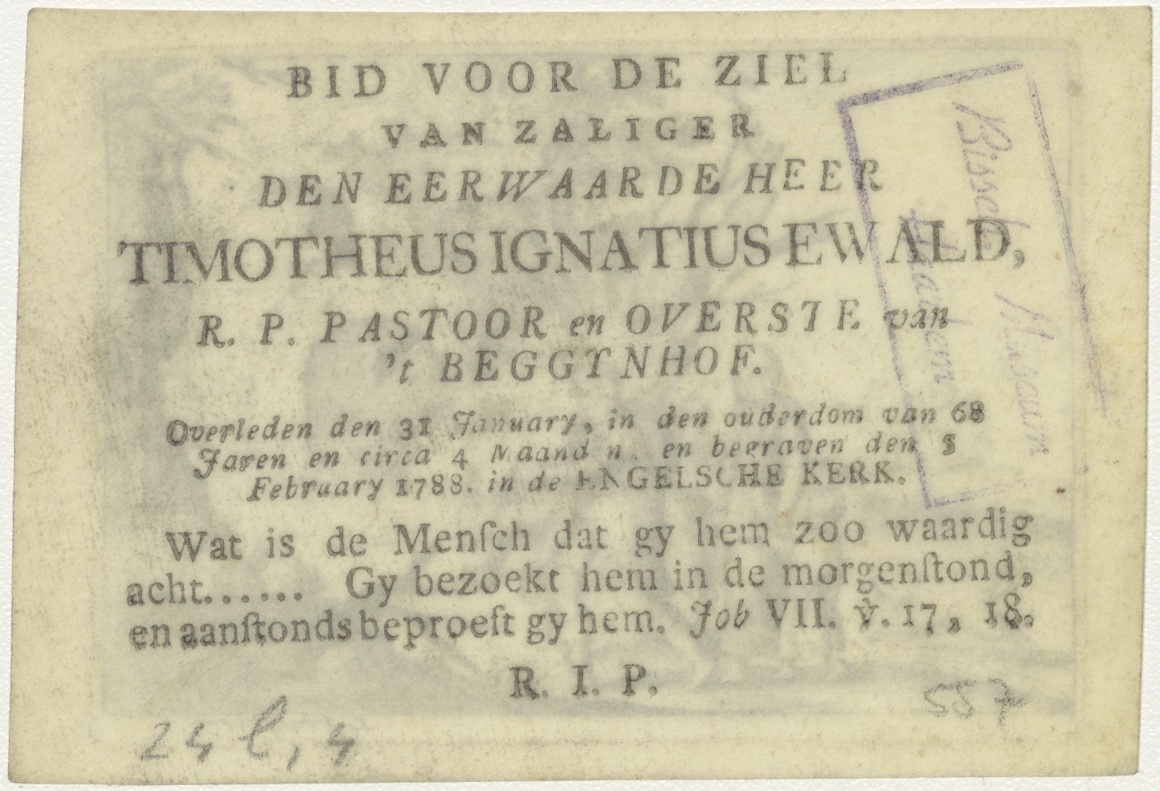 BID VOOR DE ZIEL
VAN ZALIGER
DEN EERWAARDE HEER
TIMOTHEUS IGNATIUS EWALD,
R. P. PASTOOR en OVERSTE van
't BEGGYNHOF.
Overleden den 31 January, in den ouderdom van 68
Jaren en circa 4 Maand n. en begraven den 3
February 1788. in de ENGELSCHE KERK.
Wat is de Menſch dat gy hem zoo waardig
acht...... Gy bezoekt hem in de morgenſtond,
en aanſtonds beproeft gy hem. Job VII. v. 17, 18.
R. I. P.
24 l, 4
557
Bissch. Museum
Haarlem